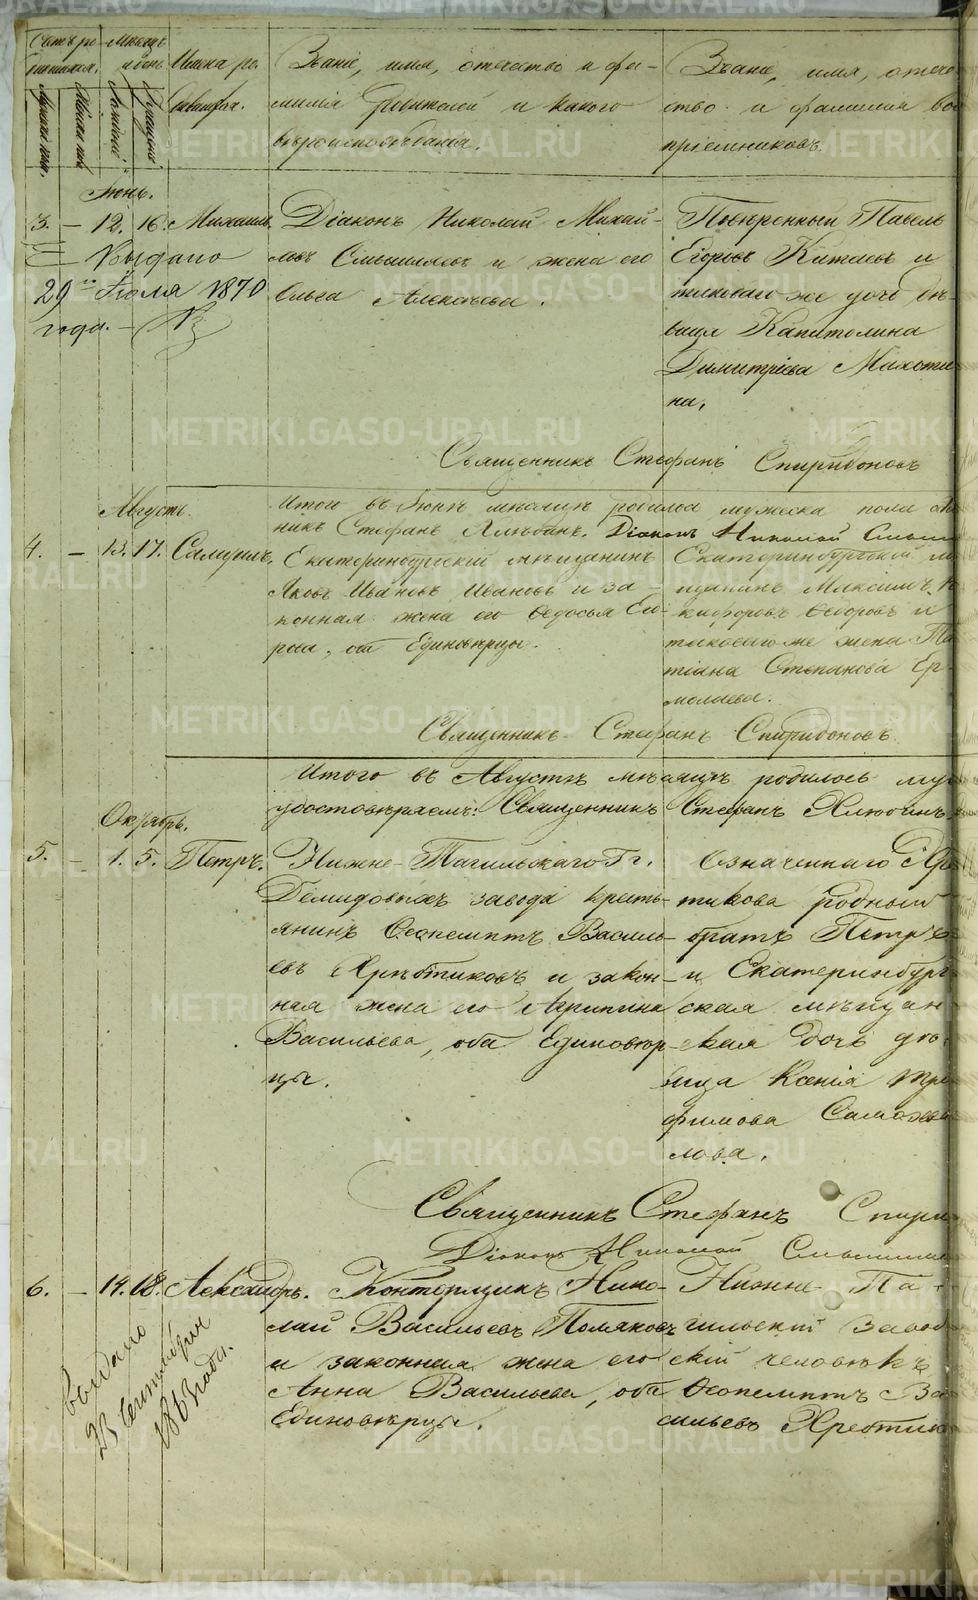 Счетъ ро-
дившихся.
Мѣсяцъ
и день.
Имена ро-
дившихся.
Званіе, имя, отчество и фа-
милія родителей и какого
вѣроисповѣданія.
Званіе, имя, отече-
ство и фамилія во
пріемниковъ.
Июнь.
3. — 12. 16. Михаилъ.
Діаконъ Николай Михай-
ловъ Смышляевъ и жена его
Ольга Алексѣева.
Повѣренный Павелъ
Егоровъ Китаевъ и
таковаго же дочь дѣ-
вица Капитолина
Димитріева Махоти-
на.
Выдано
29го Іюля 1870
года.
Священникъ Стефанъ Спиридоновъ
Итого въ Іюнѣ мѣсяцѣ родилося мужеска пола
никъ Стефанъ Хлюбинъ. Діаконъ Николай Смыш
Августъ.
4. — 13. 17. Самуилъ.
Екатеринбургскій мѣщанинъ
Яковъ Ивановъ Ивановъ и за-
конная жена его Ѳедосья Его-
рова, оба Единовѣрцы.
Екатеринбургской мѣ
щанинъ Максимъ Ни
кифоровъ Ѳедоровъ и
таковаго же жена Та
тіана Степанова Ер-
молаева.
Священникъ Стефанъ Спиридоновъ
Итого въ Августѣ мѣсяцѣ родилось му
удостовѣряемъ: Священникъ Стефанъ Хлюбинъ
Октябрь.
5. — 1. 5. Петръ.
Нижне-Тагильскаго Гг.
Демидовыхъ завода кресть-
янинъ Ѳеопемптъ Василь-
евъ Хрѣбтиковъ и закон-
ная жена его Агрипина
Васильева, оба Единовѣр-
цы.
Означеннаго Хре
тикова родный
братъ Петръ
и Екатеринбург
ская мѣщан
ская дочь дѣ-
вица Ксенія Тро
фимова Самохва
лова.
Священникъ Стефанъ Спири
Діаконъ Николай Смышляе
6. — 14. 18. Александръ.
Конторщикъ Нико-
лай Васильевъ Поляковъ
и законная жена его
Анна Васильева, оба
Единовѣрцы.
Нижне-Та-
гильскій завод
скій человѣкъ
Ѳеопемптъ Ва
сильевъ Хребтик
Выдано
23 Сентября
1863 года.
METRIKI.GASO-URAL.RU